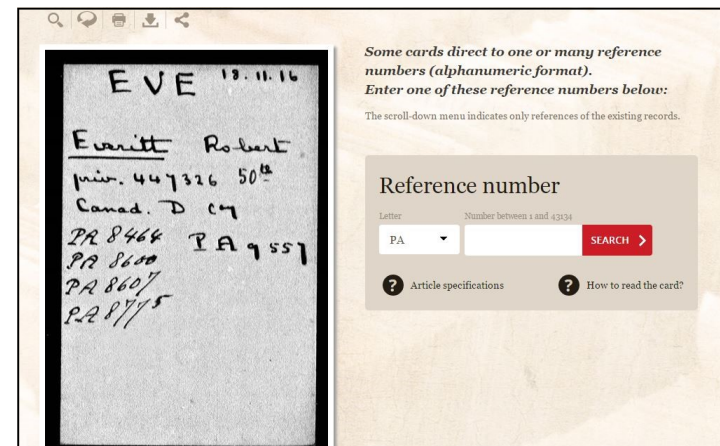 EVE 18.11.16
Everitt Robert
priv. 447326 50th
Canad. D Cy
PA 8464 PA 9557
PA 8600
PA 8607
PA 8775
Some cards direct to one or many reference
numbers (alphanumeric format).
Enter one of these reference numbers below:
The scroll-down menu indicates only references of the existing records.
Reference number
Letter Number between 1 and 43134
PA SEARCH
? Article specifications ? How to read the card?